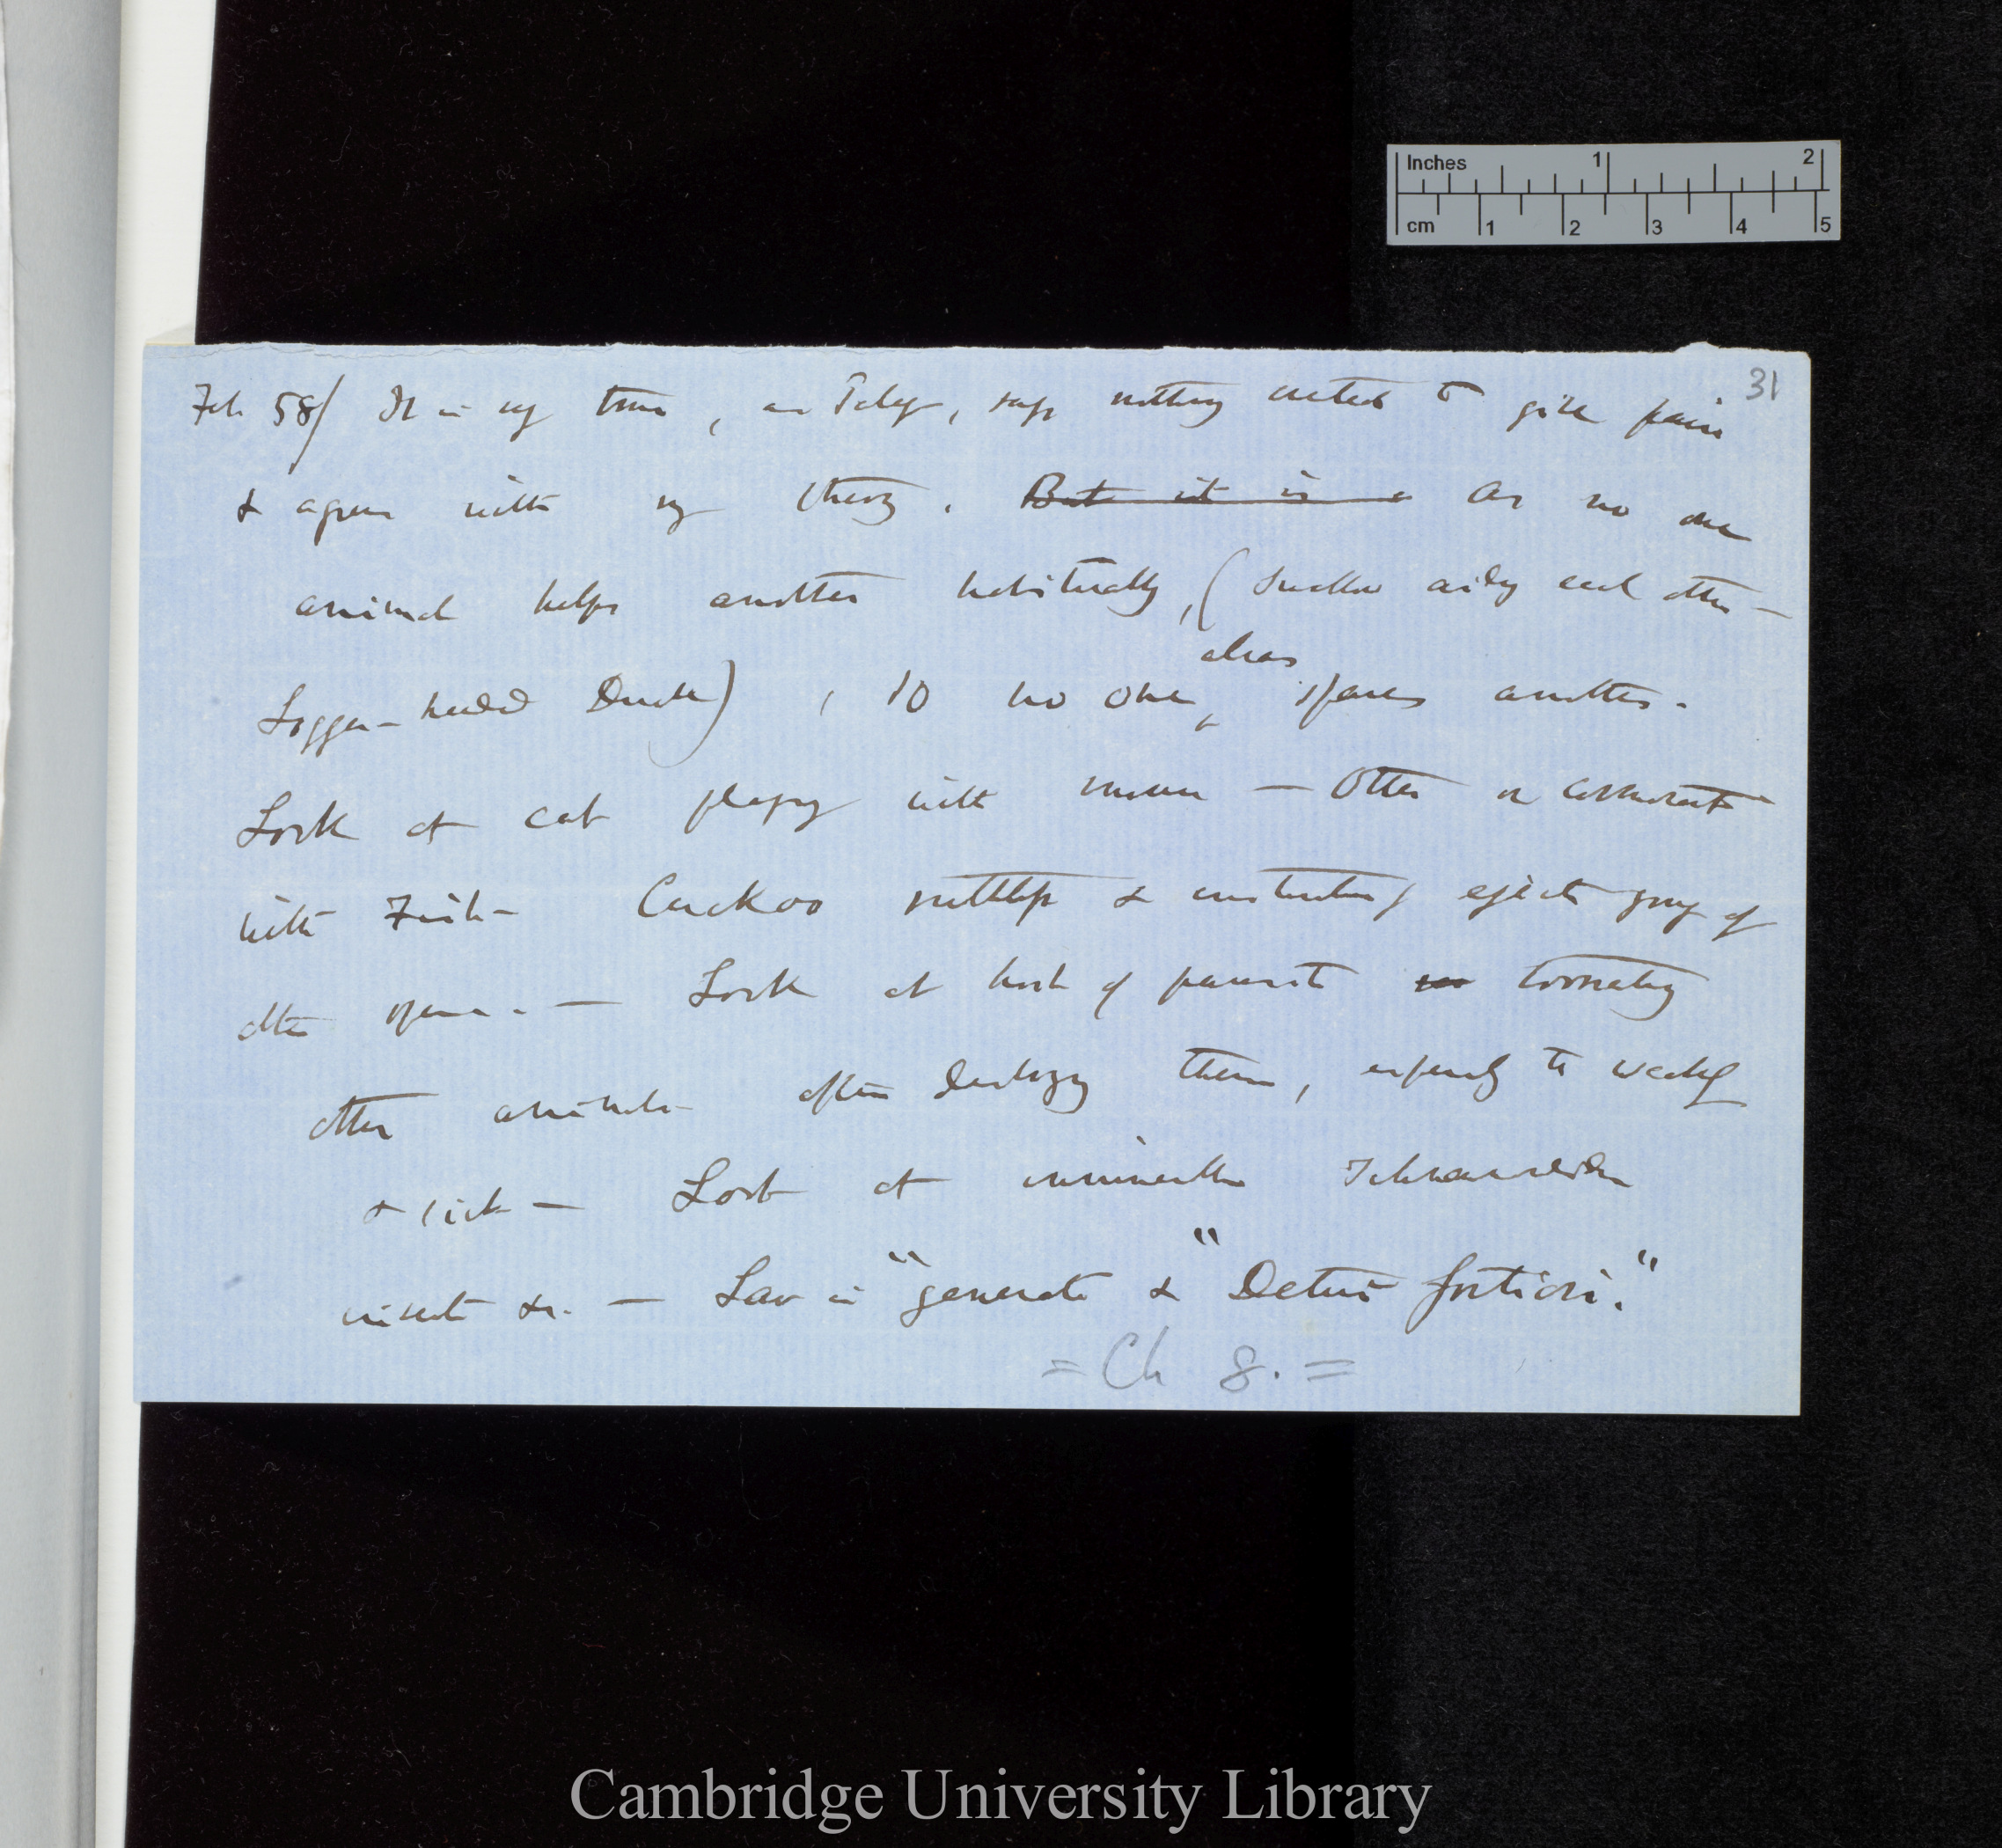 Inches 1 2
cm 1 2 3 4 5
31
Feb 58/ It is very true, as Paley, says nothing created to give pain
& agrees with my theory. But it is a As no one
animal helps another habitually, (Swallow aiding each other —
Logger-headed Duck), so no one
also
spares another.
Look at cat playing with mouse — Otter or cormorant
with Fish — Cuckoo ruthlessly & instinctively ejects young of
other species. — Look at host of parasites tormenting
other animals often destroying them, especially the weakly
& sick — Look at innumerable Ichneumonidous
insects &c. — Law is "generate" & "Detur fortiori."
= Ch 8. =
Cambridge University Library